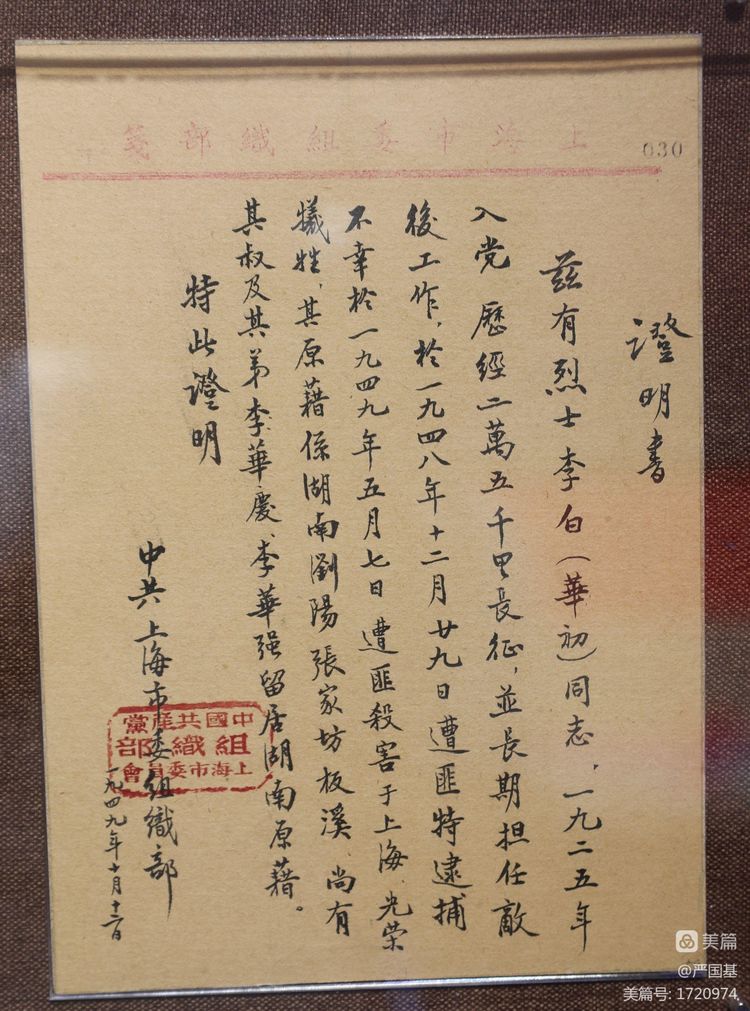 上海市委組織部箋
030
證明書
茲有烈士李白（華初）同志，一九二五年
入党 歷經二萬五千里長征，並長期担任敵
後工作，於一九四八年十二月廿九日遭匪特逮捕
不幸於一九四九年五月七日遭匪殺害于上海、光榮
犧牲，其原藉係湖南瀏陽張家坊板溪、尚有
其叔及其弟李華慶、李華强留居湖南原藉。
特此證明
中共上海市委組織部
一九四九年十月十二日
中國共產黨
組織部
上海市委員會
美篇
@严国基
美篇号: 1720974